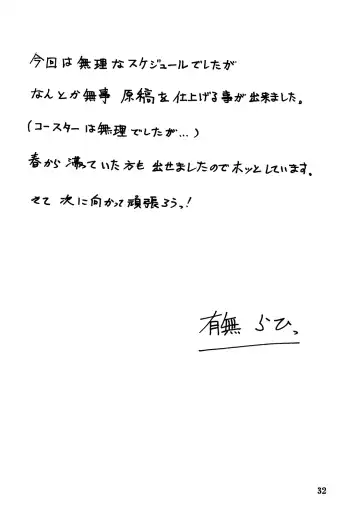 今回は無理なスケジュールでしたが
なんとか無事 原稿を仕上げる事が出来ました。
(コースターは無理でしたが...)
春から満っていた方も出せましたのでホッとしています。
さて 次に向かって頑張ろうっ!
有無 らひっ
32